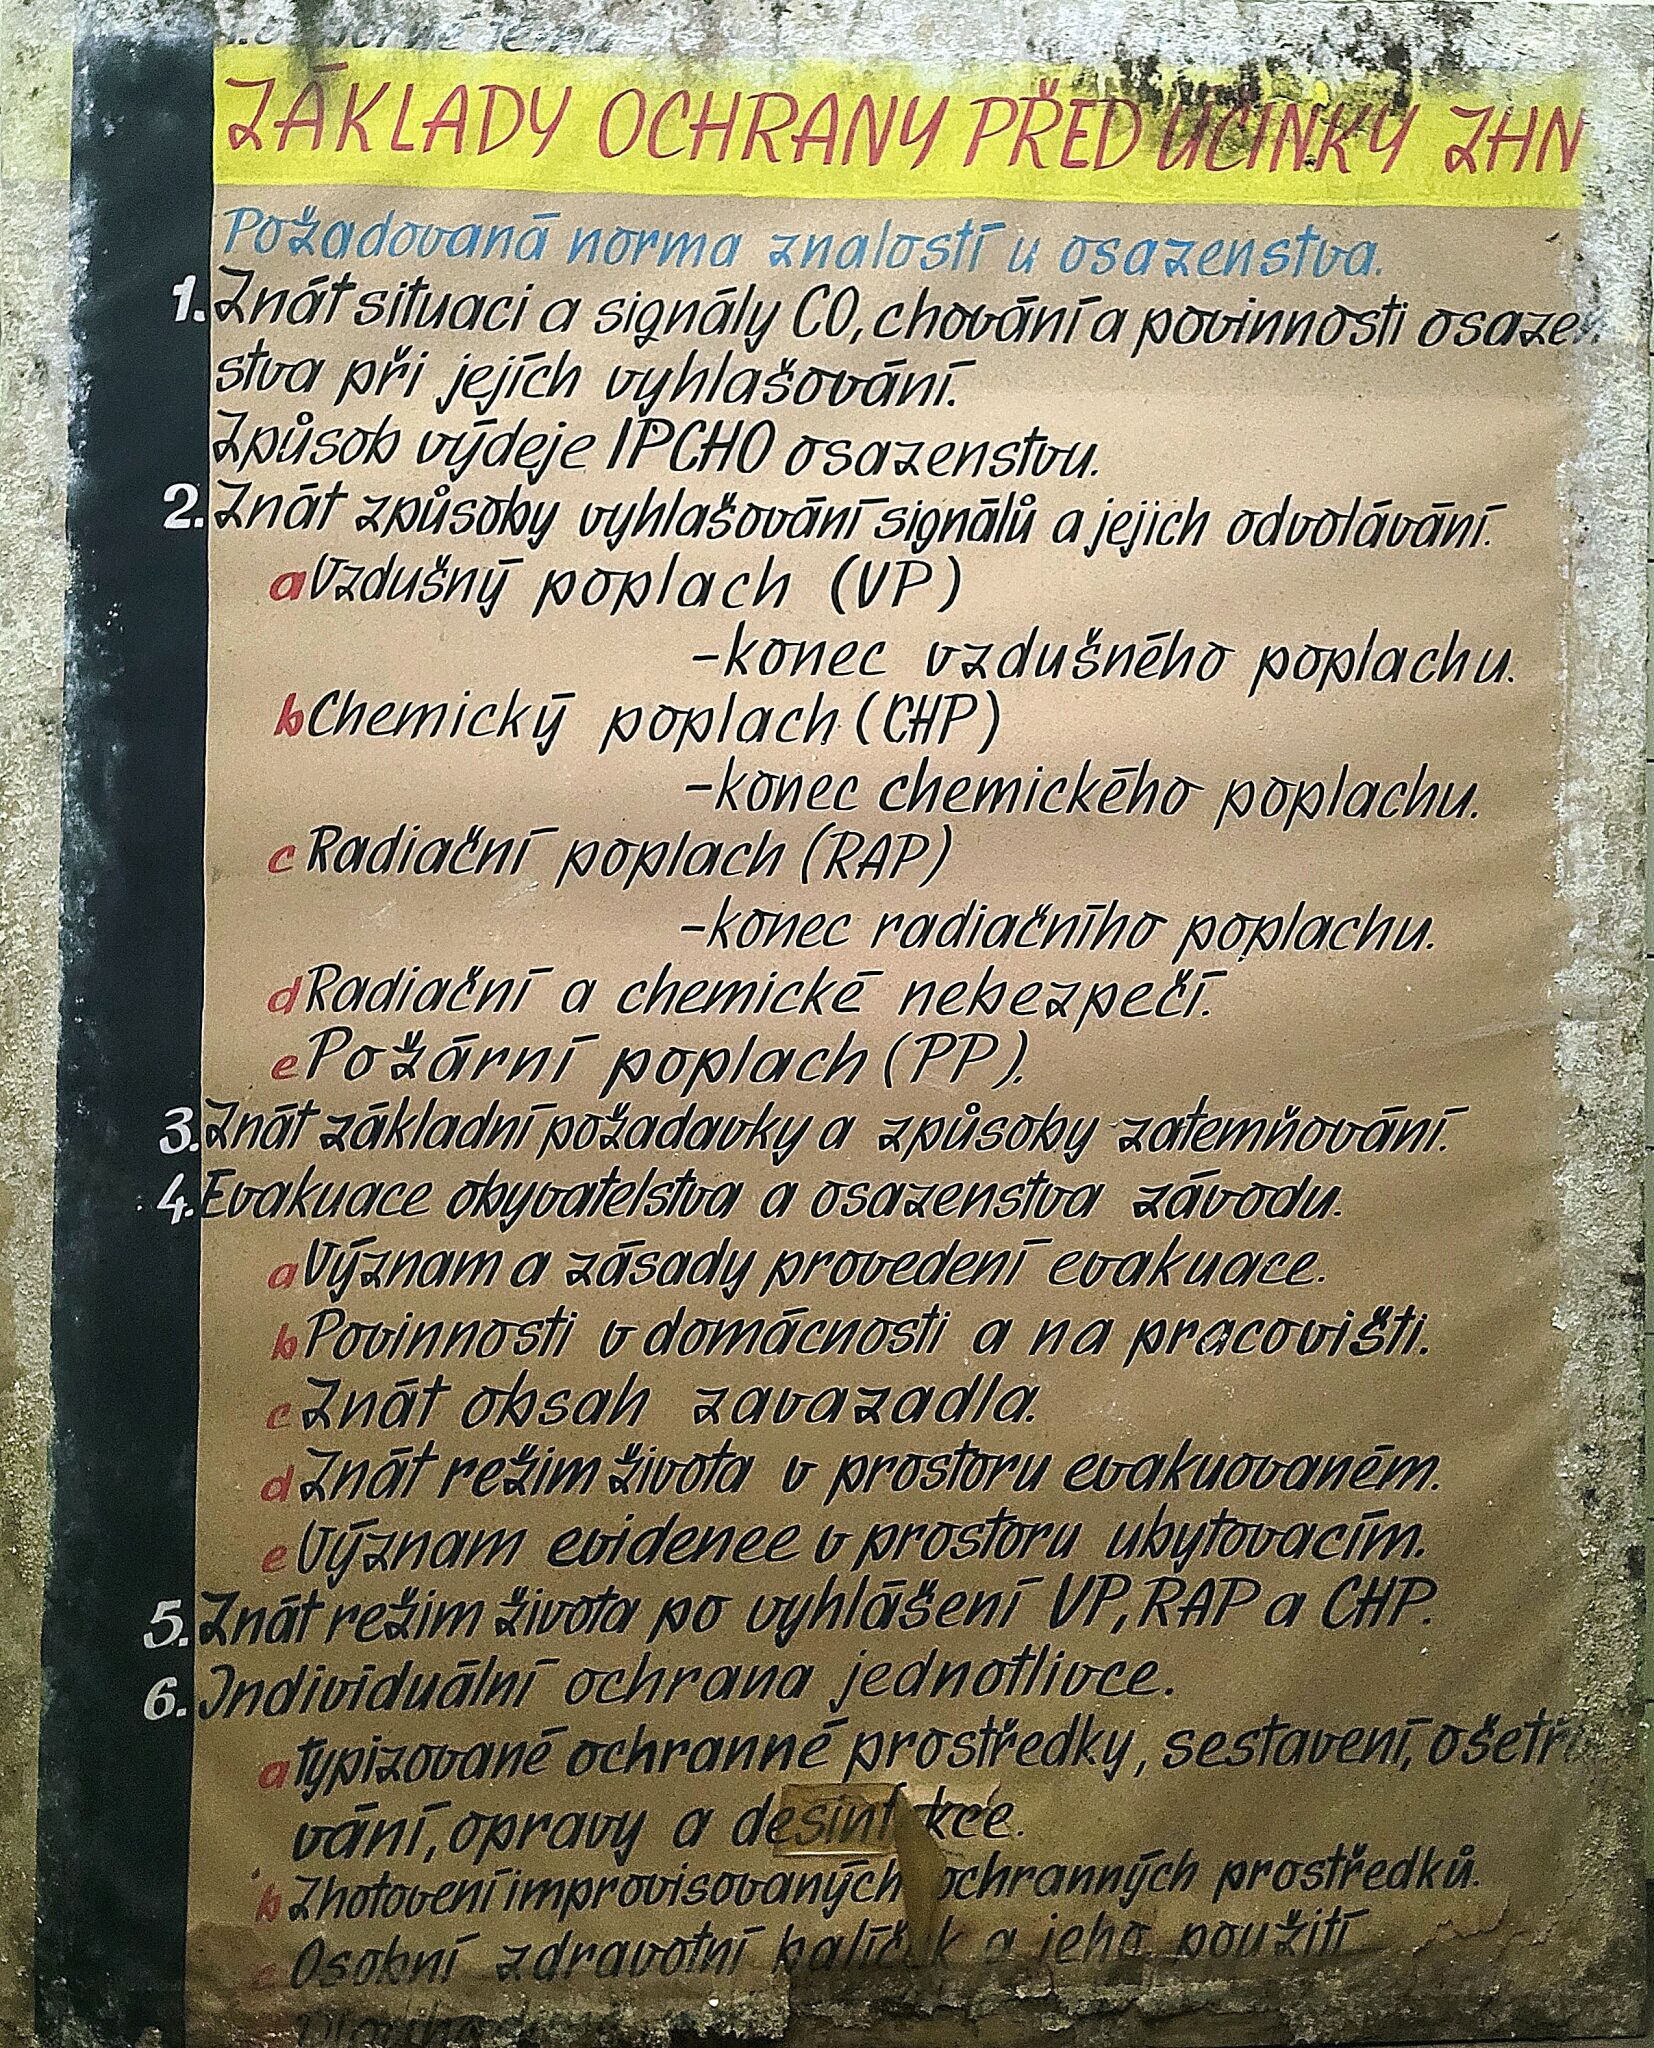 ZÁKLADY OCHRANY PŘED ÚČINKY ZHN
Požadovaná norma znalostí u osazenstva.
1. Znát situaci a signály CO, chování a povinnosti osazen
stva při jejích vyhlašování.
Způsob výdeje IPCHO osazenstvu.
2. Znát způsoby vyhlašování signálů a jejich odvolávání.
a Vzdušný poplach (VP)
-konec vzdušného poplachu.
b Chemický poplach (CHP)
-konec chemického poplachu.
c Radiační poplach (RAP)
-konec radiačního poplachu.
d Radiační a chemické nebezpečí.
e Požární poplach (PP).
3. Znát základní požadavky a způsoby zatemňování.
4. Evakuace obyvatelstva a osazenstva závodu.
a Význam a zásady provedení evakuace.
b Povinnosti v domácnosti a na pracovišti.
c Znát obsah zavazadla.
d Znát režim života v prostoru evakuovaném.
e Význam evidenee v prostoru ubytovacím.
5. Znát režim života po vyhlášení VP, RAP a CHP.
6. Individuální ochrana jednotlivce.
a typizované ochranné prostředky, sestavení, ošetřo
vání, opravy a desinfekce.
b Zhotovení improvisovaných ochranných prostředků.
c Osobní zdravotní balíček a jeho použití